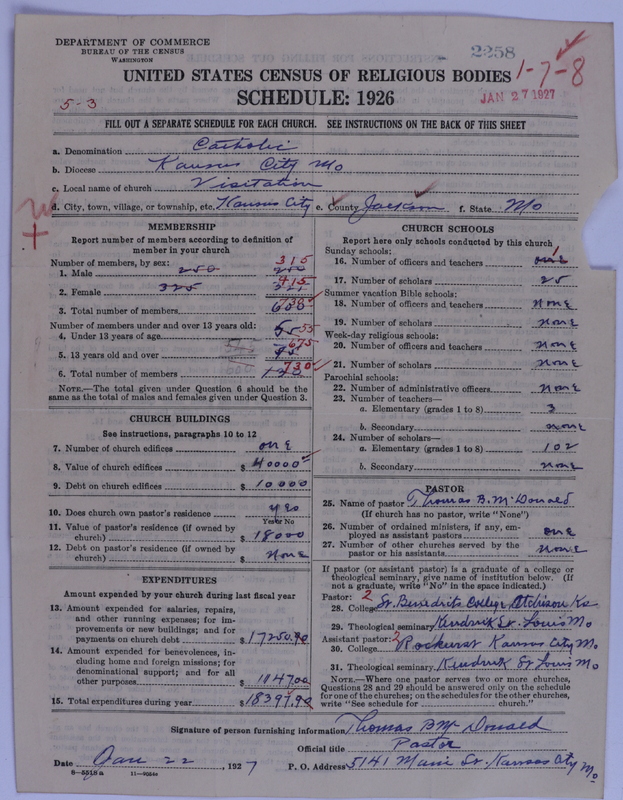 DEPARTMENT OF COMMERCE
BUREAU OF THE CENSUS
WASHINGTON
2258
UNITED STATES CENSUS OF RELIGIOUS BODIES
1-7-8
SCHEDULE: 1926
JAN 27 1927
5-3
FILL OUT A SEPARATE SCHEDULE FOR EACH CHURCH. SEE INSTRUCTIONS ON THE BACK OF THIS SHEET
a. Denomination Catholic
b. Diocese Kansas City Mo
c. Local name of church Visitation
d. City, town, village, or township, etc. Kansas City e. County Jackson f. State Mo
MEMBERSHIP
Report number of members according to definition of member in your church
Number of members, by sex: 315
1. Male 250
2. Female 325 415
3. Total number of members
Number of members under and over 13 years old:
4. Under 13 years of age 55
5. 13 years old and over 675
6. Total number of members 730
NOTE.—The total given under Question 6 should be the same as the total of males and females given under Question 3.
CHURCH BUILDINGS
See instructions, paragraphs 10 to 12
7. Number of church edifices one
8. Value of church edifices $ 40000
9. Debt on church edifices $ 10000
10. Does church own pastor's residence? yes
Yes or No
11. Value of pastor's residence (if owned by church) $ 18000
12. Debt on pastor's residence (if owned by church) $ none
EXPENDITURES
Amount expended by your church during last fiscal year
13. Amount expended for salaries, repairs, and other running expenses; for improvements or new buildings; and for payments on church debt $ 17250.90
14. Amount expended for benevolences, including home and foreign missions; for denominational support; and for all other purposes $ 1147.00
15. Total expenditures during year $ 18397.90
CHURCH SCHOOLS
Report here only schools conducted by this church
Sunday schools:
16. Number of officers and teachers one 1
17. Number of scholars 25
Summer vacation Bible schools:
18. Number of officers and teachers none
19. Number of scholars none
Week-day religious schools:
20. Number of officers and teachers none
21. Number of scholars none
Parochial schools:
22. Number of administrative officers none
23. Number of teachers—
a. Elementary (grades 1 to 8) 3
b. Secondary none
24. Number of scholars—
a. Elementary (grades 1 to 8) 102
b. Secondary none
PASTOR
25. Name of pastor Thomas B. McDonald
(If church has no pastor, write "None")
26. Number of ordained ministers, if any, employed as assistant pastors one
27. Number of other churches served by the pastor or his assistants none
If pastor (or assistant pastor) is a graduate of a college or theological seminary, give name of institution below. (If not a graduate, write "No" in the space indicated.)
Pastor: 2
28. College St. Benedicts College Atchison Ks
29. Theological seminary Kendrick St. Louis Mo
Assistant pastor: 2
30. College Rockurst Kansas City Mo
31. Theological seminary Kendrick St Louis Mo
NOTE.—Where one pastor serves two or more churches, Questions 28 and 29 should be answered only on the schedule for one of the churches; on the schedules for the other churches, write "See schedule for church."
Signature of person furnishing information Thomas B McDonald
Official title Pastor
Date Jan 22, 1927 P. O. Address 5141 Main St. Kansas City Mo
8—5518 a 11—9054a